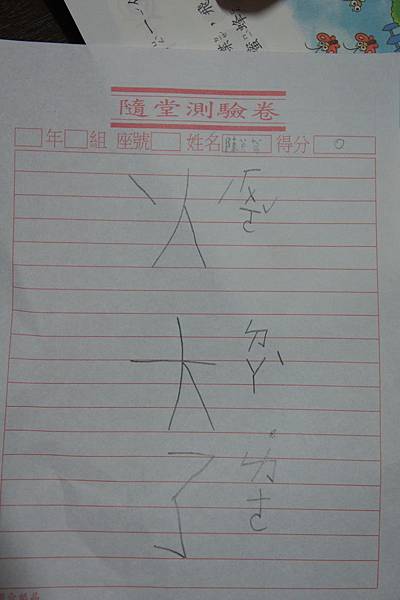 隨堂測驗卷
年 組 座號 姓名 得分 0
火 ㄏㄨㄛˇ
大 ㄉㄚˋ
了 ˙ㄌㄜ